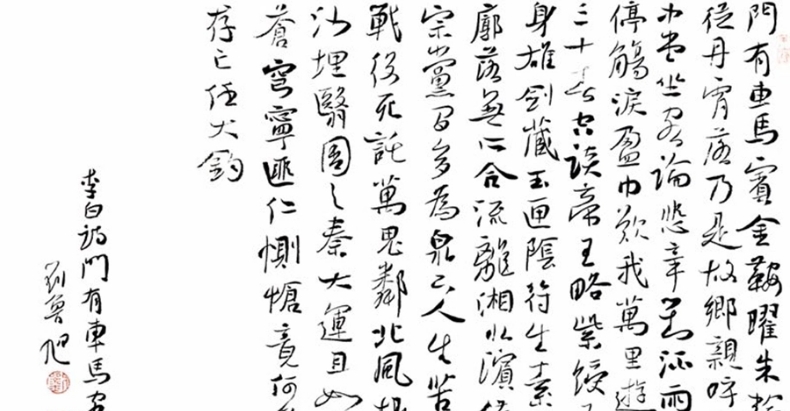 門有車馬賓金鞍曜朱
從丹霄落乃是故鄉親呼
中堂坐客論悲辛對酒兩
停觴淚盈巾歎我萬里遊
三十春空談帝王略紫綬
身雄劍藏玉匣陰符生素
廓落無所合流離湘水濱
宗黨間多為泉下人生苦
戰役死託萬鬼鄰北風揚
沙埋翳周与秦大運且如
蒼穹寧匪仁惻愴竟何
存亡任大鈞
李白詩門有車馬客
劉魯旭